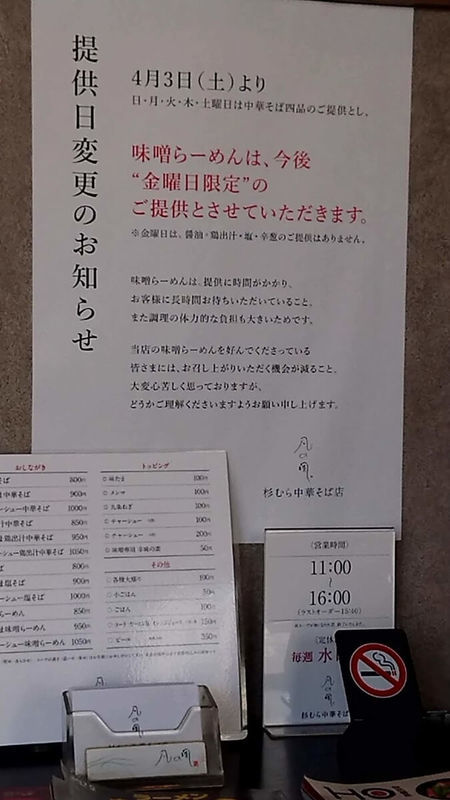 提供日変更のお知らせ
4月3日(土)より
日・月・火・木・土曜日は中華そば四品のご提供とし、
味噌らーめんは、今後
“金曜日限定”の
ご提供とさせていただきます。
※金曜日は、醤油・鶏出汁・塩・辛葱のご提供はありません。
味噌らーめんは、提供に時間がかかり、
お客様に長時間お待ちいただいていること、
また調理の体力的な負担も大きいためです。
当店の味噌らーめんを好んでくださっている
皆さまには、お召し上がりいただく機会が減ること、
大変心苦しく思っておりますが、
どうかご理解くださいますようお願い申し上げます。
凡の風
杉むら中華そば店
おしながき
そば 800円
中華そば 900円
ーシュー中華そば 1000円
汁中華そば 850円
鶏出汁中華そば 950円
ーシュー鶏出汁中華そば 1050円
ば 800円
塩そば 900円
ーシュー塩そば 1000円
らーめん 850円
味噌らーめん 950円
ーシュー味噌らーめん 1050円
トッピング
味たま 100円
メンマ 100円
九条ねぎ 100円
チャーシュー 100円
チャーシュー 200円
味噌専用 辛味の素 50円
その他
各種大盛り 100円
小ごはん 50円
ごはん 100円
150円
ビール 350円
〈営業時間〉
11:00
〜
16:00
(ラストオーダー15:40)
〈定休
毎週 水
凡の風
杉むら中華そば
凡の風
凡の風